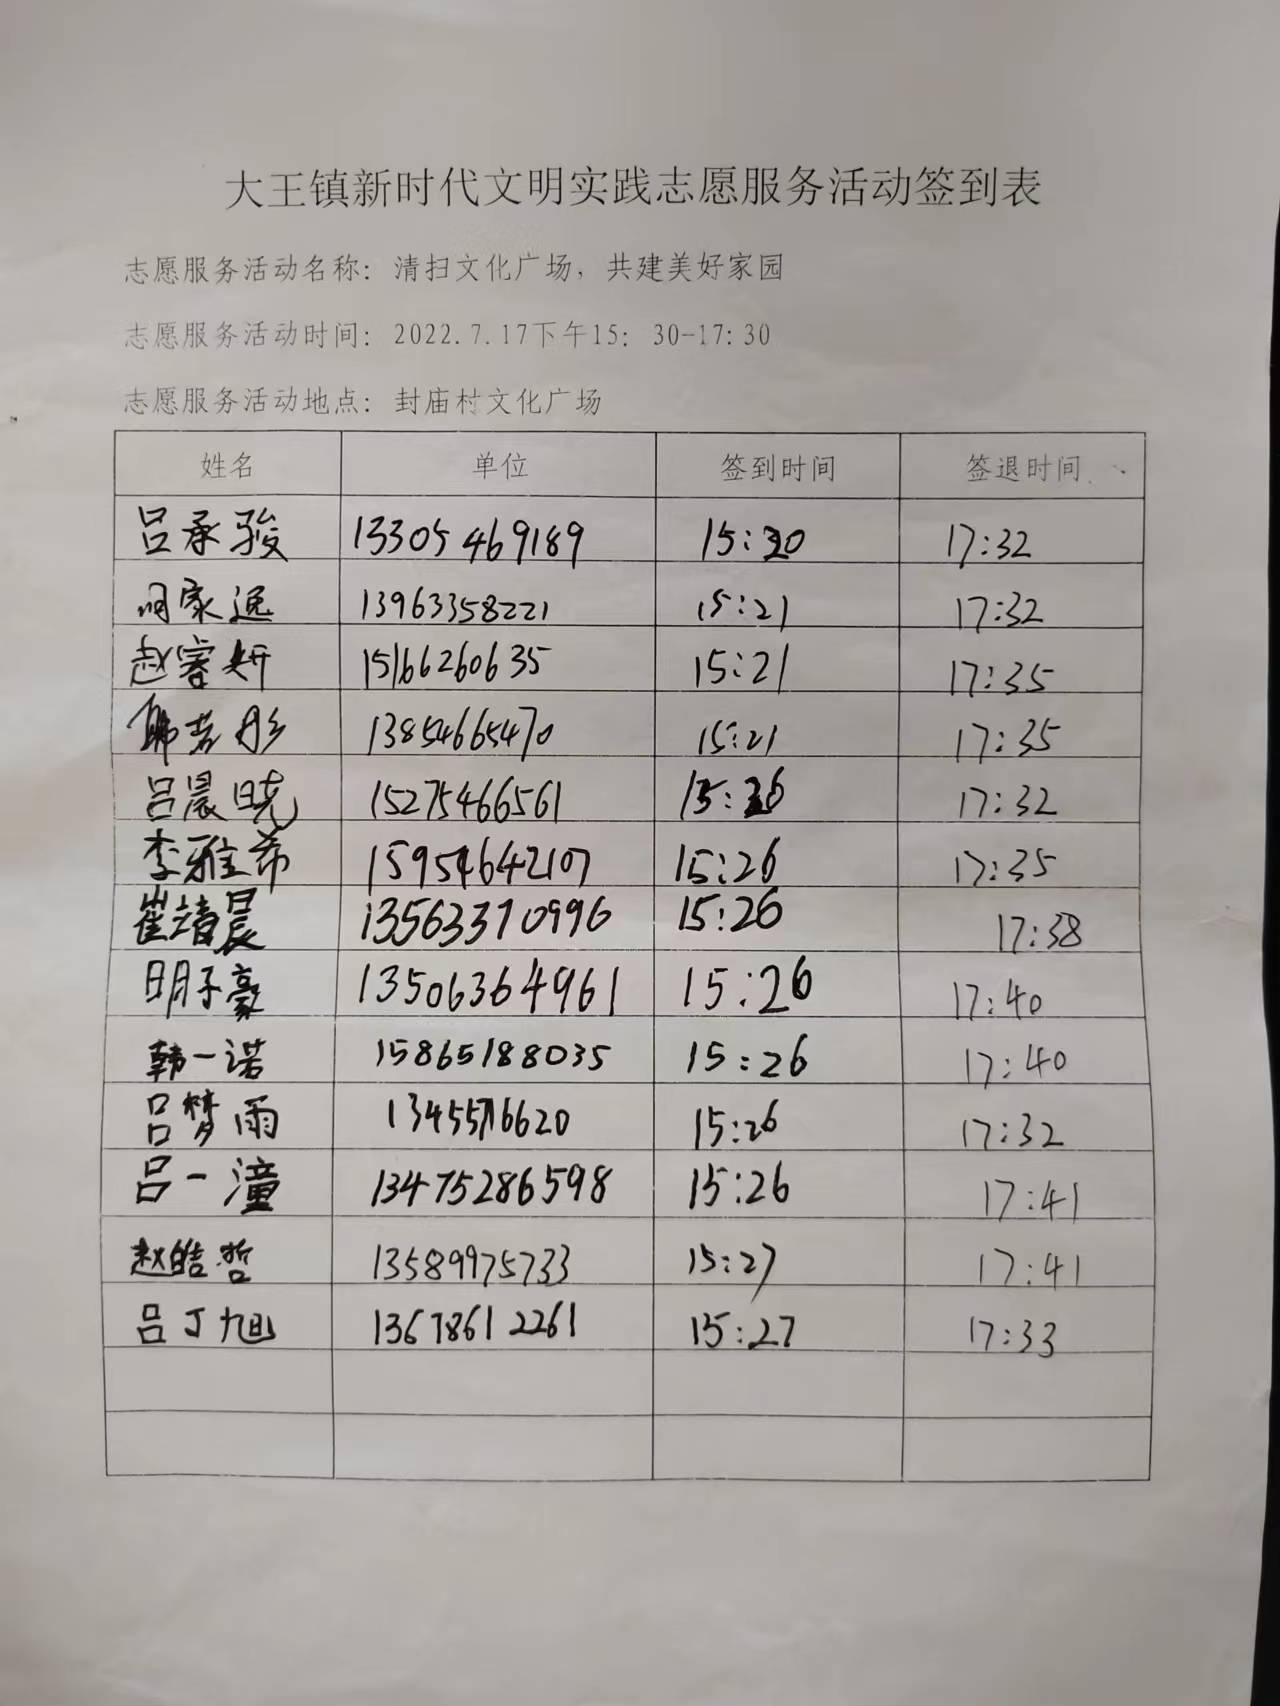 大王镇新时代文明实践志愿服务活动签到表
志愿服务活动名称：清扫文化广场，共建美好家园
志愿服务活动时间：2022.7.17下午15：30-17:30
志愿服务活动地点：封庙村文化广场
姓名 单位 签到时间 签退时间
吕承骏 13305469189 15:20 17:32
家逸 13963358221 15:21 17:32
赵睿妍 15166260635 15:21 17:35
若彤 13854665470 15:21 17:35
吕晨晓 15275466561 15:26 17:32
李雅希 15954642107 15:26 17:35
崔靖晨 13563370996 15:26 17:38
明子豪 13506364961 15:26 17:40
韩一诺 15865188035 15:26 17:40
吕梦雨 15:26 17:32
吕一潼 13475286598 15:26 17:41
赵皓哲 13589975733 15:27 17:41
吕丁旭 13678612261 15:27 17:33